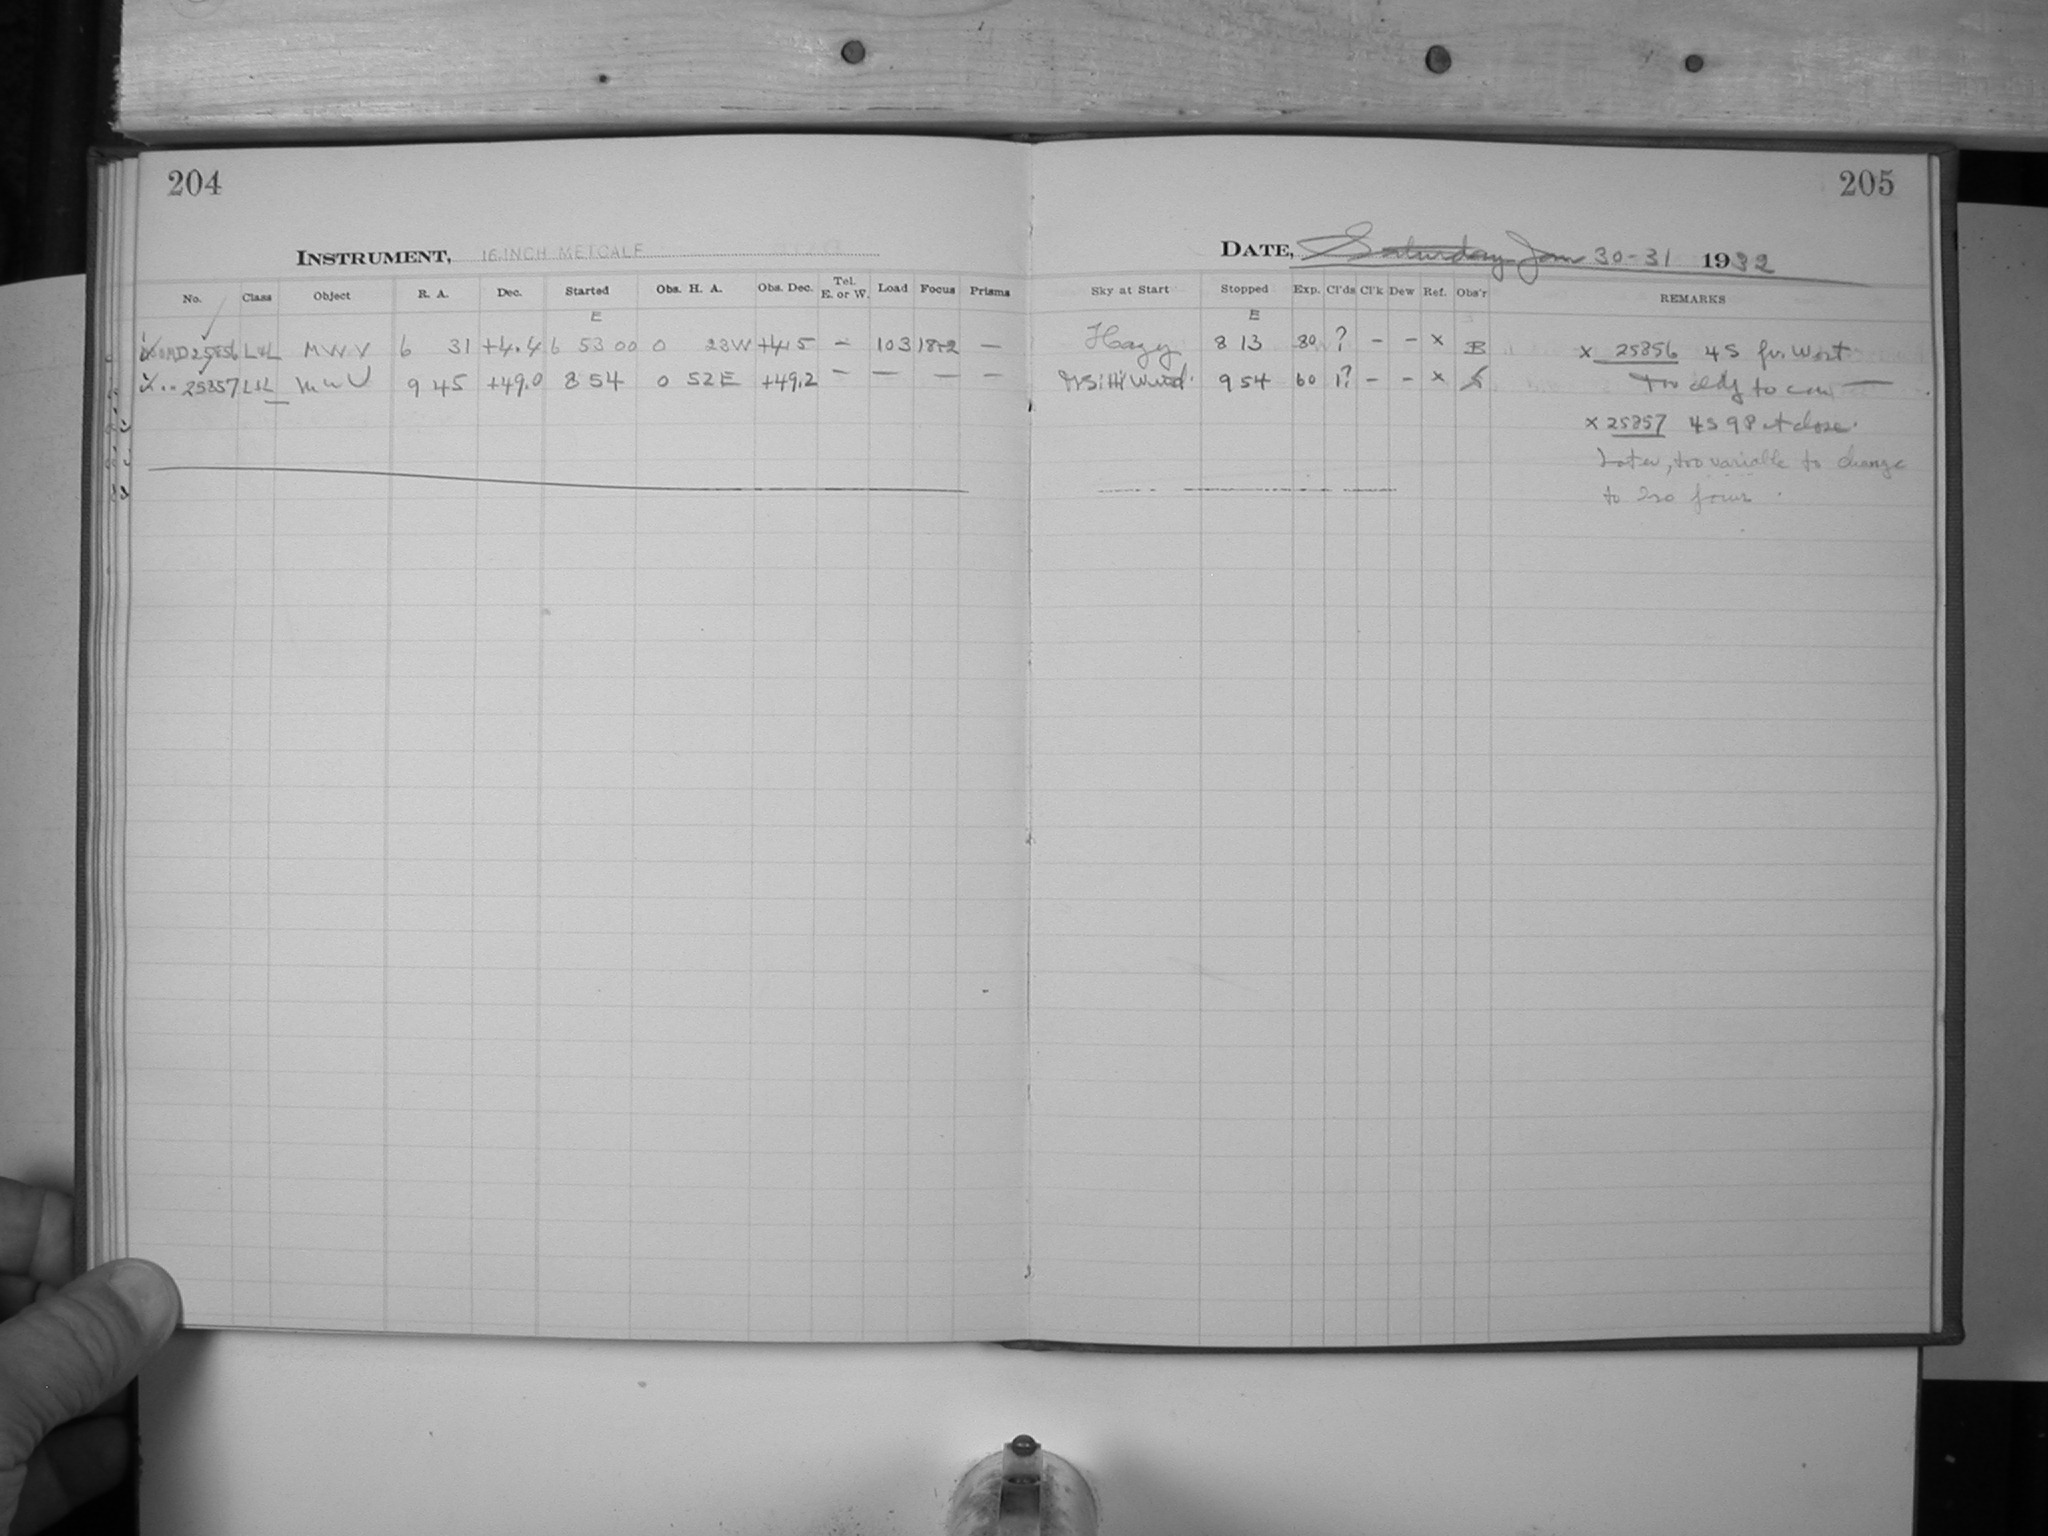 204
205
INSTRUMENT, 16-INCH METCALF
DATE, Saturday Jan 30-31 1932
No. Class Object R. A. Dec. Started Obs. H. A. Obs. Dec. Tel. E. or W. Load Focus Prisms
Sky at Start Stopped Exp. Cl'ds Cl'k Dew Ref. Obs'r REMARKS
E
E
25856 L+L MWV 6 31 +4.4 6 53 00 0 23W +4.5 – 103 18.2 –
Hazy 8 13 80 ? – – x B x 25856 45 for West
25857 L+L MWV 9 45 +49.0 8 54 0 52E +49.2 – – – –
Wind. 9 54 60 1? – – x Too cldy to
x 25857 45 9P at close.
Later, too variable to change
to